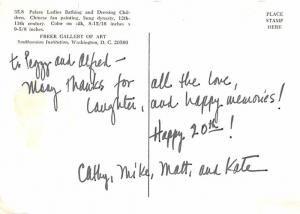 35.8 Palace Ladies Bathing and Dressing Chil-
dren. Chinese fan painting, Sung dynasty, 12th-
13th century. Color on silk, 8-15/16 x
9-5/8 inches.
FREER GALLERY OF ART
Smithsonian Institution, Washington, D. C. 20560
PLACE
STAMP
HERE
to Peggy and Alfred —
Many Thanks for all the love,
laughter, and happy memories!
Happy 20th!
Cathy, Mike, Matt, and Kate